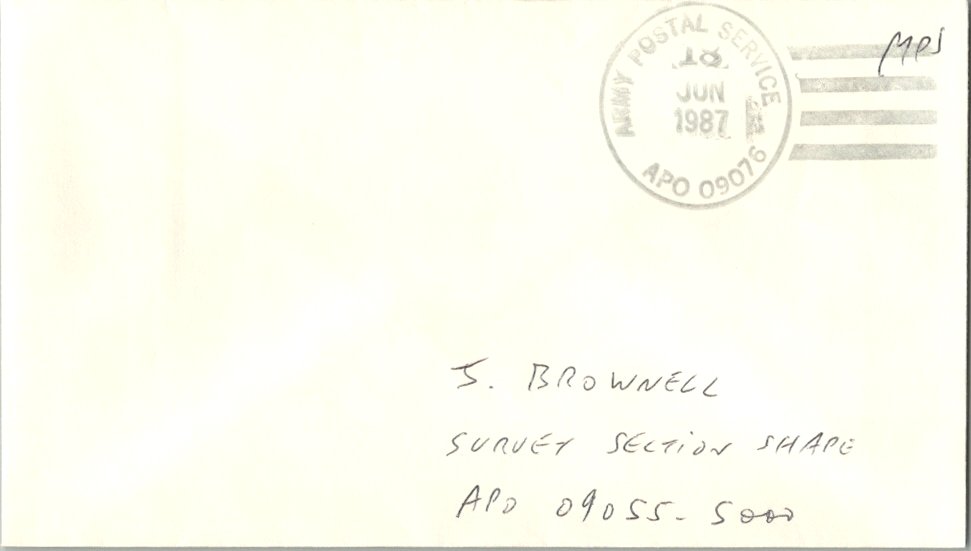 ARMY POSTAL SERVICE
18
JUN
1987
APO 09076
MPS
J. BROWNELL
SURVEY SECTION SHAPE
APO 09055-5000